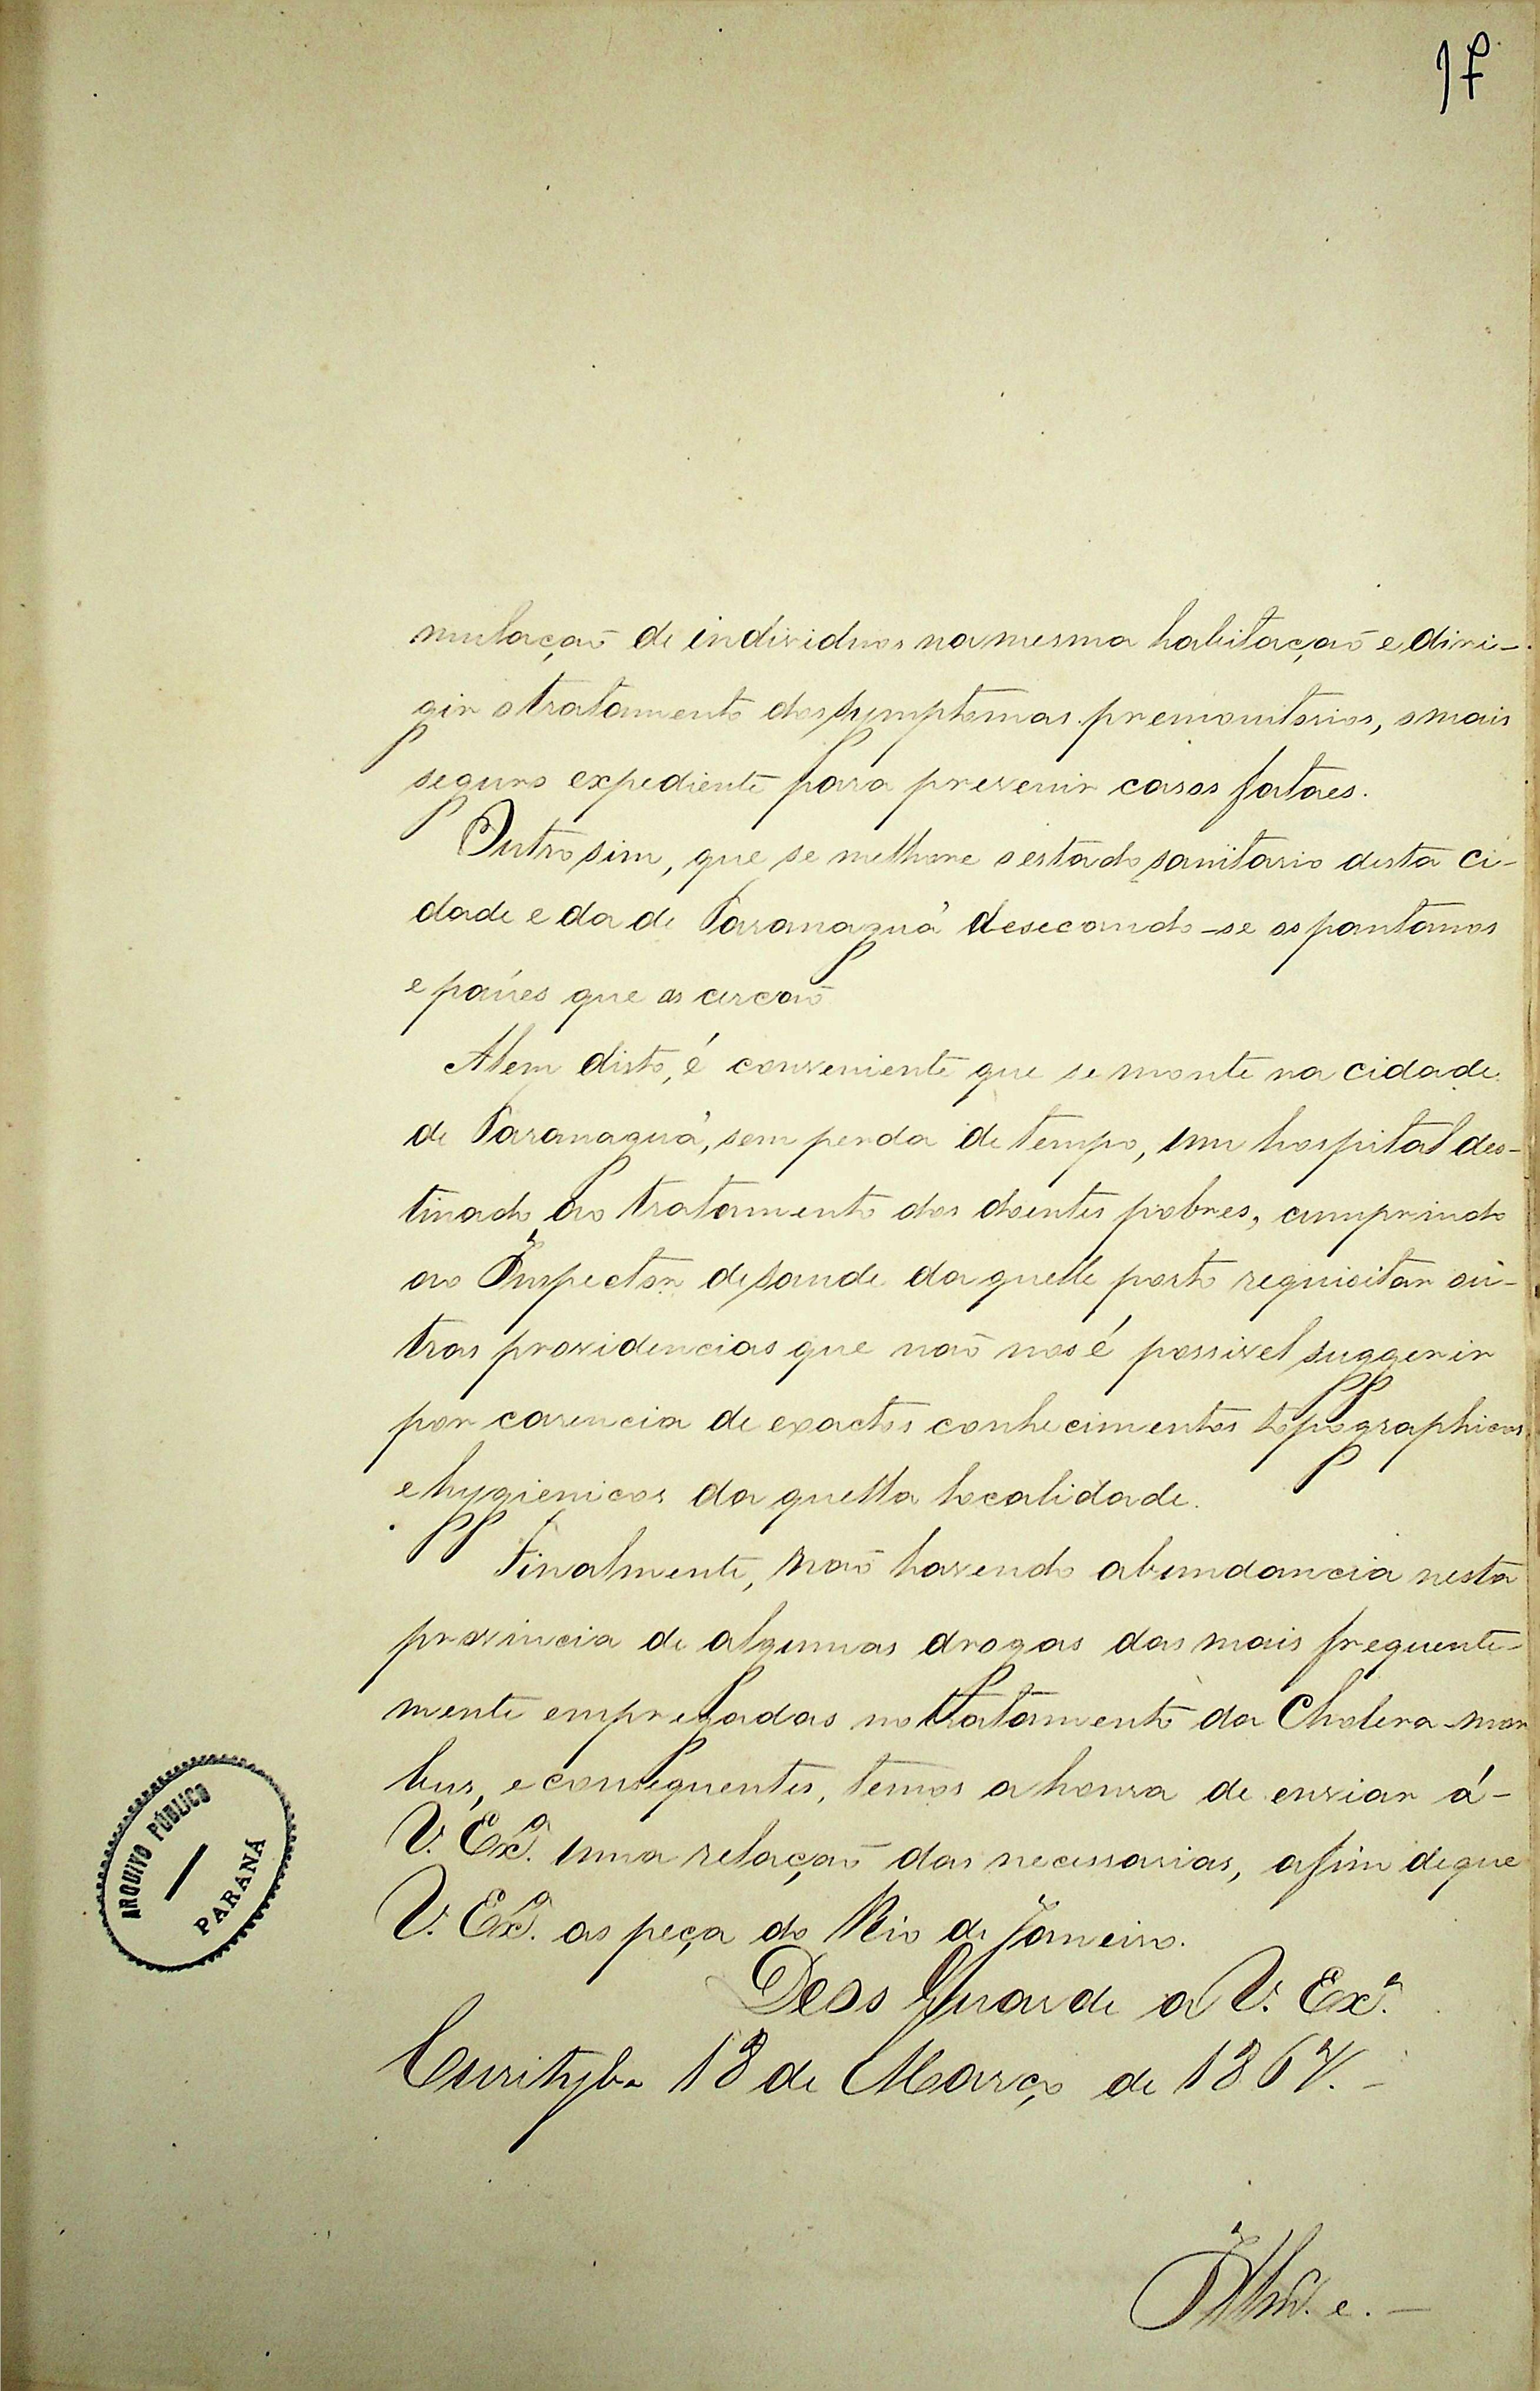 17
mulação de individuos na mesma habitação e diri-
gir o tratamento dos symptomas premonitorios, o mais
seguro expediente para prevenir casos fataes.
Outro sim, que se melhore o estado sanitario desta ci-
dade e da de Paranaguá desecando-se os pantanos
e paúes que as cercaõ
Alem disto, é conveniente que se monte na cidade
de Paranaguá, sem perda de tempo, um hospital des-
tinado ao tratamento dos doentes pobres, cumprindo
ao Inspector de saude daquelle porto requisitar ou-
tras providencias que naõ nos é possivel suggerir
por carencia de exactos conhecimentos topographicos
e hygienicos da quella localidade.
Finalmente, naõ havendo abundancia nesta
provincia de algumas drogas das mais frequente-
mente empregadas no tratamento da Cholera-mor
bus, e consequentes, temos a honra de enviar á-
V. Exª. uma relaçaõ das necessarias, afim de que
V. Exª. as peça do Rio de Janeiro.
Deos Guarde a V. Exª.
Curityba 18 de Março de 1867.-
Illmº. e. -
ARQUIVO PÚBLICO
PARANÁ